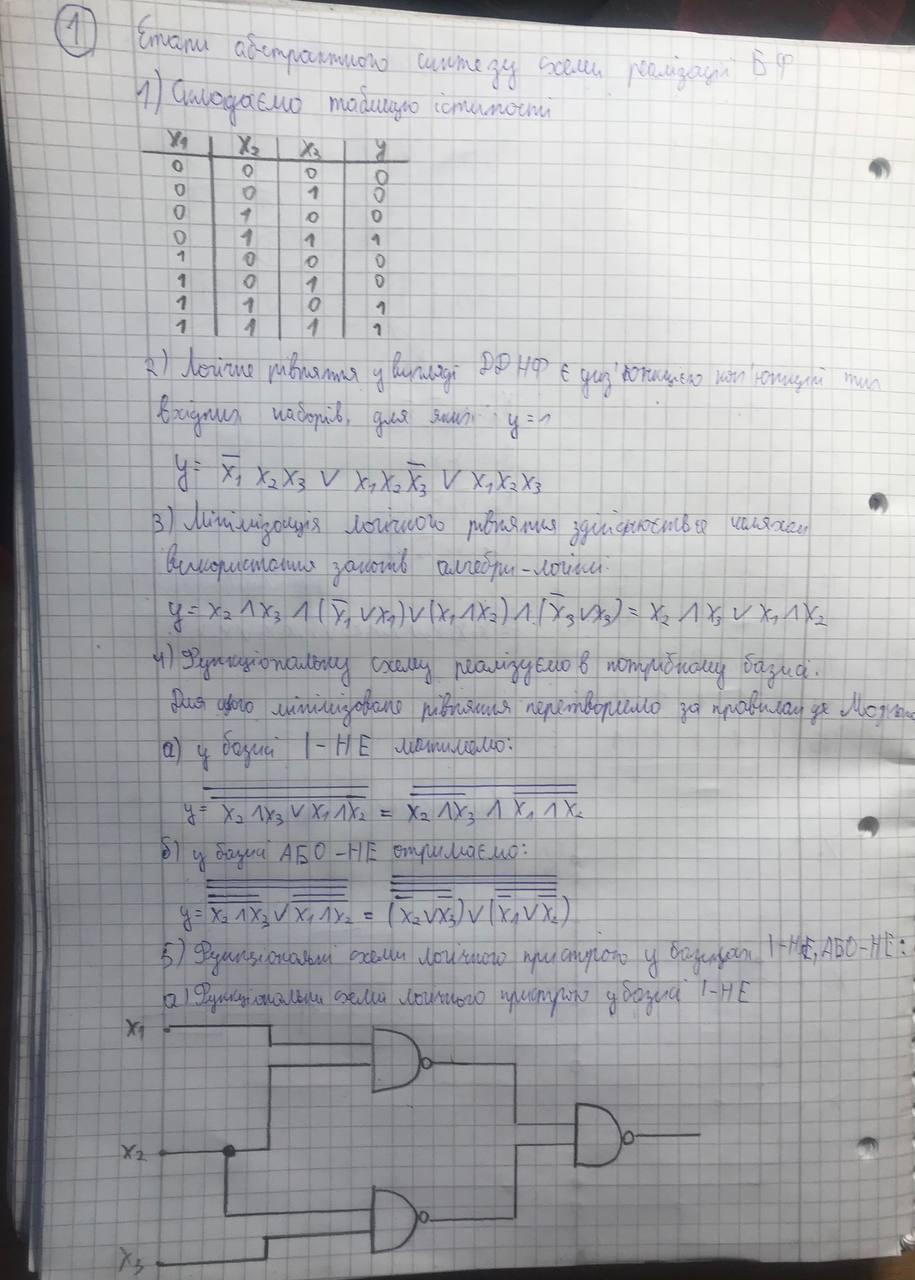 1
Етапи абстрактного синтезу схеми реалізації БФ
1) Складаємо таблицю істинності
x₁ x₂ x₃ y
0 0 0 0
0 0 1 0
0 1 0 0
0 1 1 1
1 0 0 0
1 0 1 0
1 1 0 1
1 1 1 1
2) Логічне рівняння у вигляді ДДНФ є диз'юнкцією кон'юнкцій тих
вхідних наборів, для яких y=1
y= x̅₁ x₂x₃ ∨ x₁x₂x̅₃ ∨ x₁x₂x₃
3) Мінімізація логічного рівняння здійснюється шляхом
використання законів алгебри-логіки.
y= x₂∧x₃∧(x̅₁∨x₁)∨(x₁∧x₂)∧(x̅₃∨x₃)= x₂∧x₃∨x₁∧x₂
4) Функціональну схему реалізуємо в потрібному базисі.
Для цього мінімізоване рівняння перетворимо за правилами де
а) у базисі І-НЕ матимемо:
y= x₂∧x₃∨x₁∧x₂ = x₂∧x₃ ∧ x₁∧x₂
б) у базисі АБО-НЕ отримаємо:
y= x₂∧x₃∨x₁∧x₂ = (x₂∨x₃)∨(x₁∨x₂)
5) Функціональні схеми логічного пристрою у базисах І-НЕ, АБО-НЕ:
а) Функціональна схема логічного пристрою у базисі І-НЕ
x₁
x₂
x₃